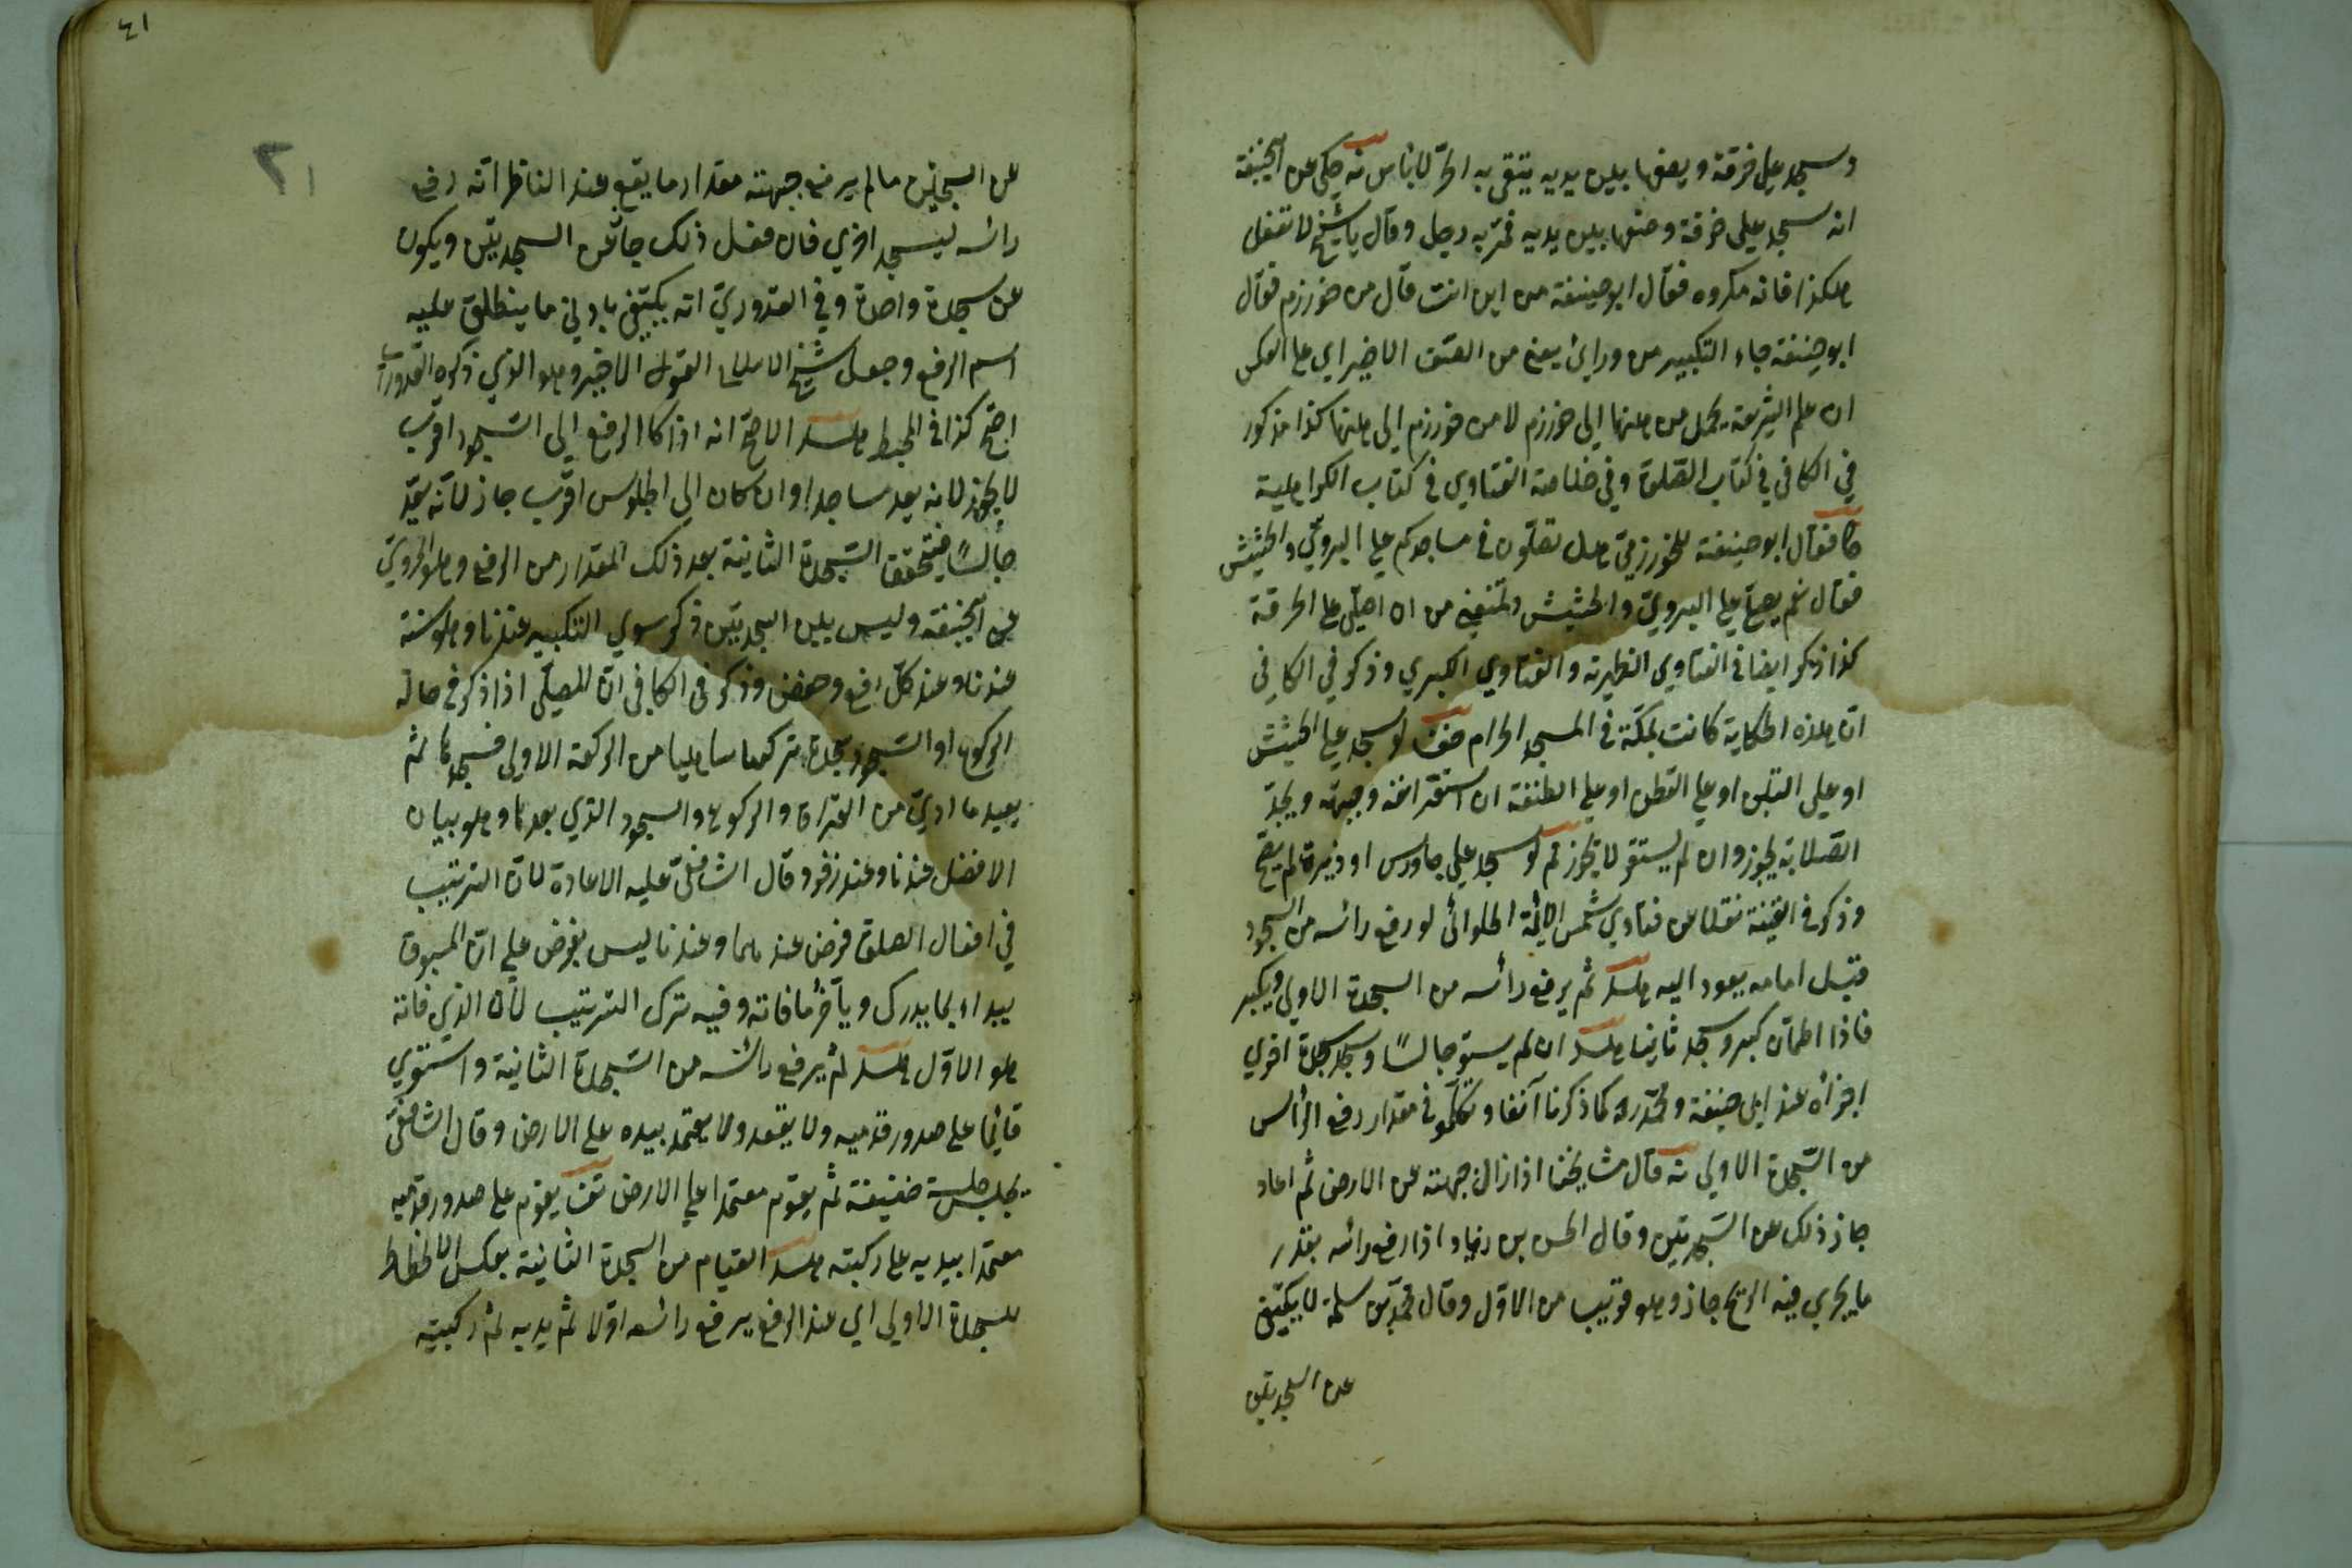 وسجد علي خرقة ويضعها بين يديه يتقي به الحرّ لا بأس نه حكي عن ابيحنيفة
انه سجد علي خرقة وضعها بين يديه فمرّ به رجل وقال يا شيخ لا تفعل
هكذا فانه مكروه فقال ابو حنيفة من اين انت قال من خورزم فقال
ابو حنيفة جاء التكبير من ورائ يعني من الصف الاخير اي علي العكس
ان علم الشريعة يحمل من ههنا الي خورزم لا من خورزم الي ههنا كذا مذكور
في الكافي في كتاب الصلوة وفي خلاصة الفتاوي في كتاب الكراهية
فقال ابو حنيفة للخورزميّ هل تصلّون في مساجدكم علي البرويّ والحشيش
فقال نعم يصحّ علي البرويّ والحشيش وتمنعني من ان اصلّي علي الخرقة
كذا ذكر ايضا في الفتاوي الظهيرية والفتاوي الكبري وذكر في الكافي
انّ هذه الحكاية كانت بمكّة في المسجد الحرام لو سجد علي الحشيش
او علي التبن او علي القطن او علي الطنفة ان استقر انفه وجبهته ويجد
الصلابة يجوز وان لم يستقر لا يجوز ثم لو سجد علي جاورس او ذرة لم يصح
وذكر في القنية نقلا عن فتاوي شمس الائمّة الحلوائي لو رفع رائسه من السجود
قبل امامه يعود اليه هسد ثم يرفع رائسه من السجدة الاولي ويكبر
فاذا اطمأن كبر وسجد ثانيا هسد ان لم يستو جالسًا وسجد سجدة اخري
اجزأه عند ابي حنيفة ومحمّد ره كما ذكرنا آنفا وتكلّموا في مقدار رفع الرائس
من السّجدة الاولي نه قال مشايخنا اذا زال جبهته عن الارض ثم اعاد
جاز ذلك عن السّجدتين وقال الحسن بن زياد اذا رفع رائسه بقدر
ما يجري فيه الريح جاز وهو قريب من الاوّل وقال محمّد بن سلمة لا يكتفي
عن السجدتين
٤١
٢١
عن السجدتين ما لم يرفع جبهته مقدار ما يقع عند الناظر انّه رفع
رائسه ليسجد اخري فان فعل ذلك جاز عن السجدتين ويكون
عن سجدة واحدة وفي القدوريّ انّه يكتفي بادني ما ينطلق عليه
اسم الرفع وجعل شيخ الاسلام القول الاخير وهو الذي ذكره القدوريّ
اصحّ كذا في المحيط هسد الاصحّ انه اذا كا الرفع الي السّجود اقرب
لا يجوز لانه يعد ساجدا وان كان الي الجلوس اقرب جاز لانّه يعدّ
جالسًا فيتحقق السّجدة الثانية بعد ذلك المقدار من الرفع وهو المرويّ
عن ابيحنيفة وليس بين السجدتين ذكر سوي التكبير عندنا وهو سنة
عندنا وعند كلّ رفع وخفض وذكر في الكافي انّ للمصلّي اذا ذكر في حالة
الركوع او السّجود سجدة تركها ساهيا من الركعة الاولي فسجدها ثم
يعيد ما ادي من القراة والركوع والسجود الذي بعدها وهو بيان
الافضل عندنا وعند زفر وقال الشافعيّ عليه الاعادة لانّ الترتيب
في افعال الصلوة فرض عندهما وعندنا ليس بفرض علي انّ المسبوق
يبداء بما يدرك ويأخّر ما فاته وفيه ترك الترتيب لأن الذي فاته
هو الاوّل هسد ثم يرفع رائسه من السّجدة الثانية واستوي
قائما علي صدور قدميه ولا يقعد ولا يعتمد بيده علي الارض وقال الشافعيّ
يجلس جلسة خفيفة ثم يقوم معتمدا علي الارض تف يقوم علي صدور قدميه
معتمدا بيديه علي ركبته هسد القيام من السجدة الثانية بعكس الانحطاط
للسجدة الاولي اي عند الرفع يرفع رائسه اوّلا ثم يديه ثم ركبتيه